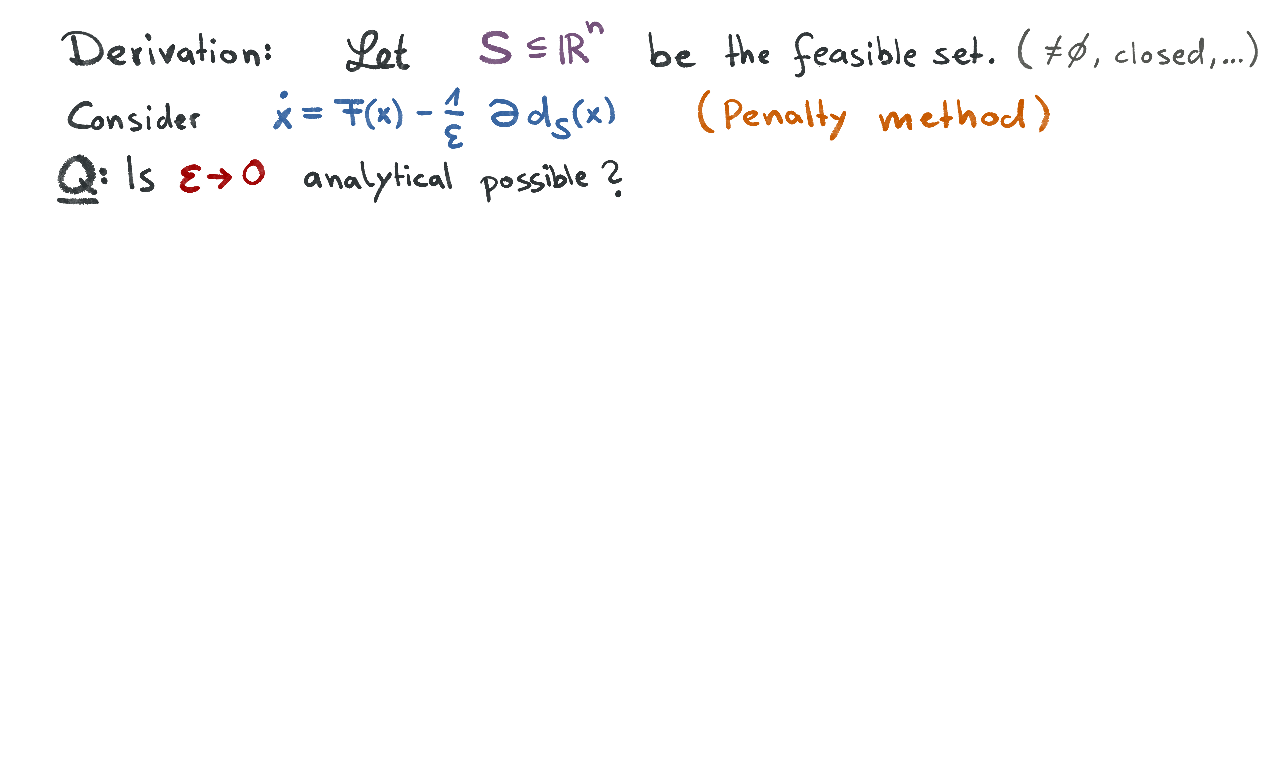 Derivation: Let S ⊆ ℝⁿ be the feasible set. (≠∅, closed,...)
Consider ẋ = F(x) - 1/ε ∂d_S(x) (Penalty method)
Q: Is ε→0 analytical possible?